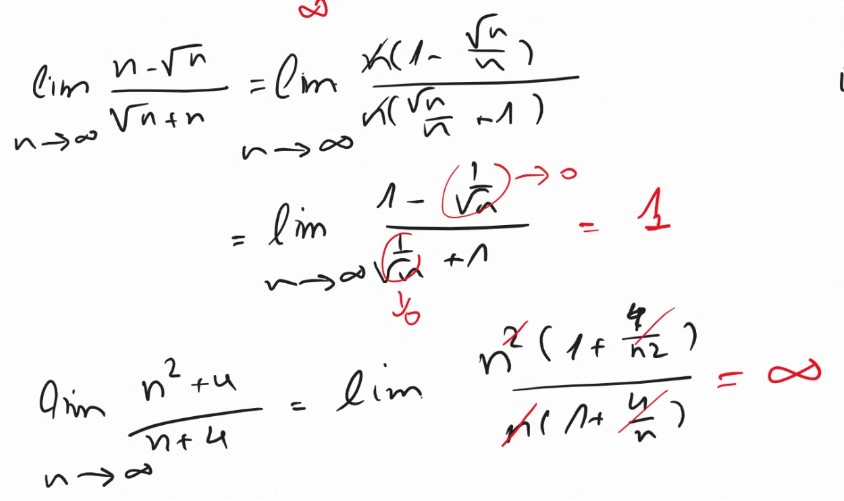 ∞
lim n→∞ (n-√n)/(√n+n) = lim n→∞ n(1-√n/n)/n(√n/n+1)
= lim n→∞ (1-1/√n)/(1/√n+1) = 1
→0
↓0
lim n→∞ (n²+4)/(n+4) = lim n²(1+4/n2)/n(1+4/n) = ∞